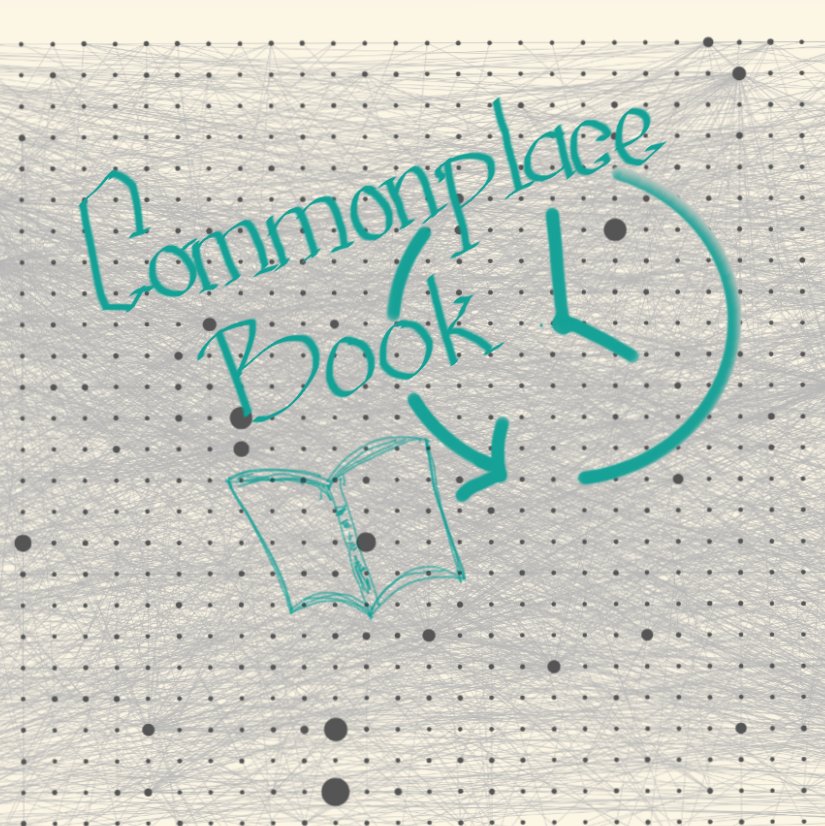 Commonplace
Book